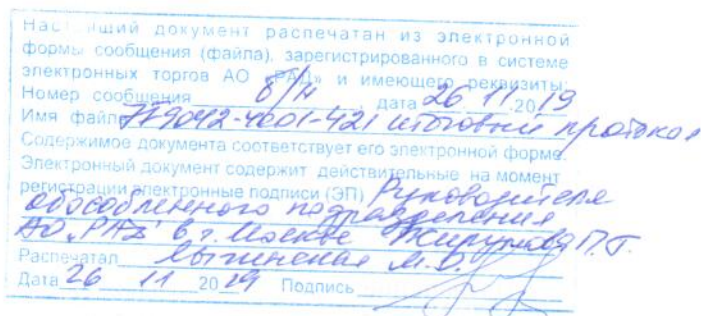 Настоящий документ распечатан из электронной
формы сообщения (файла), зарегистрированного в системе
электронных торгов АО «РАД» и имеющего реквизиты:
Номер сообщения б/н, дата 26 11.2019
Имя файла 4001-421 итоговый протокол
Содержимое документа соответствует его электронной форме.
Электронный документ содержит действительные на момент
регистрации электронные подписи (ЭП) Руководителя
обособленного подразделения
АО „РАД" в г. Москве П.Г.
Распечатал М.О.
Дата 26 11 2019 Подпись